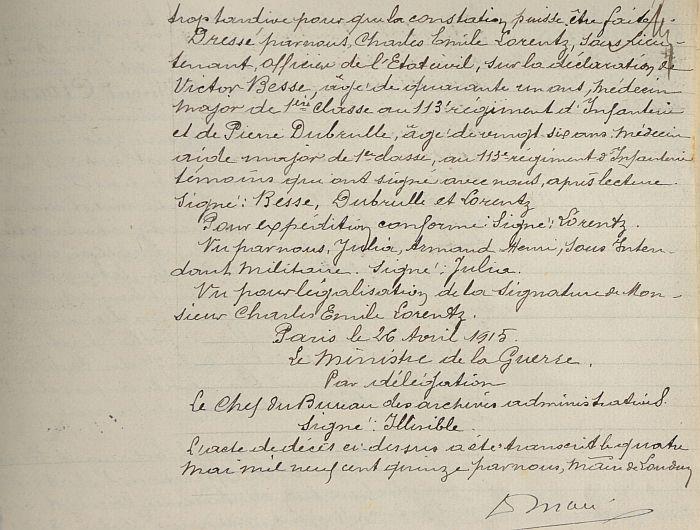 trop tardive pour que la constation puisse être faite.
Dressé par nous, Charles Emile Lorentz, sous lieu-
tenant, Officier de l'Etat civil, sur la déclaration de
Victor Besse, âgé de quarante un ans, médecin
major de 1ère classe au 113e régiment d'Infanterie
et de Pierre Dubrulle, âgé de vingt six ans médecin
aide major de 1re classe, au 113e régiment d'Infanterie
témoins qui ont signé avec nous, après lecture.
Signé: Besse, Dubrulle et Lorentz
Pour expédition conforme: Signé: Lorentz.
Vu par nous, Julia, Armand Henri, Sous Inten-
dant Militaire. Signé: Julia.
Vu pour légalisation de la signature de Mon-
sieur Charles Emile Lorentz.
Paris le 26 Avril 1915.
Le Ministre de la Guerre.
Par délégation
Le Chef du Bureau des archives administratives.
Signé: Illisible.
L'acte de décès ci-dessus a été transcrit le quatre
Mai mil neuf cent quinze par nous, Maire de Loudun